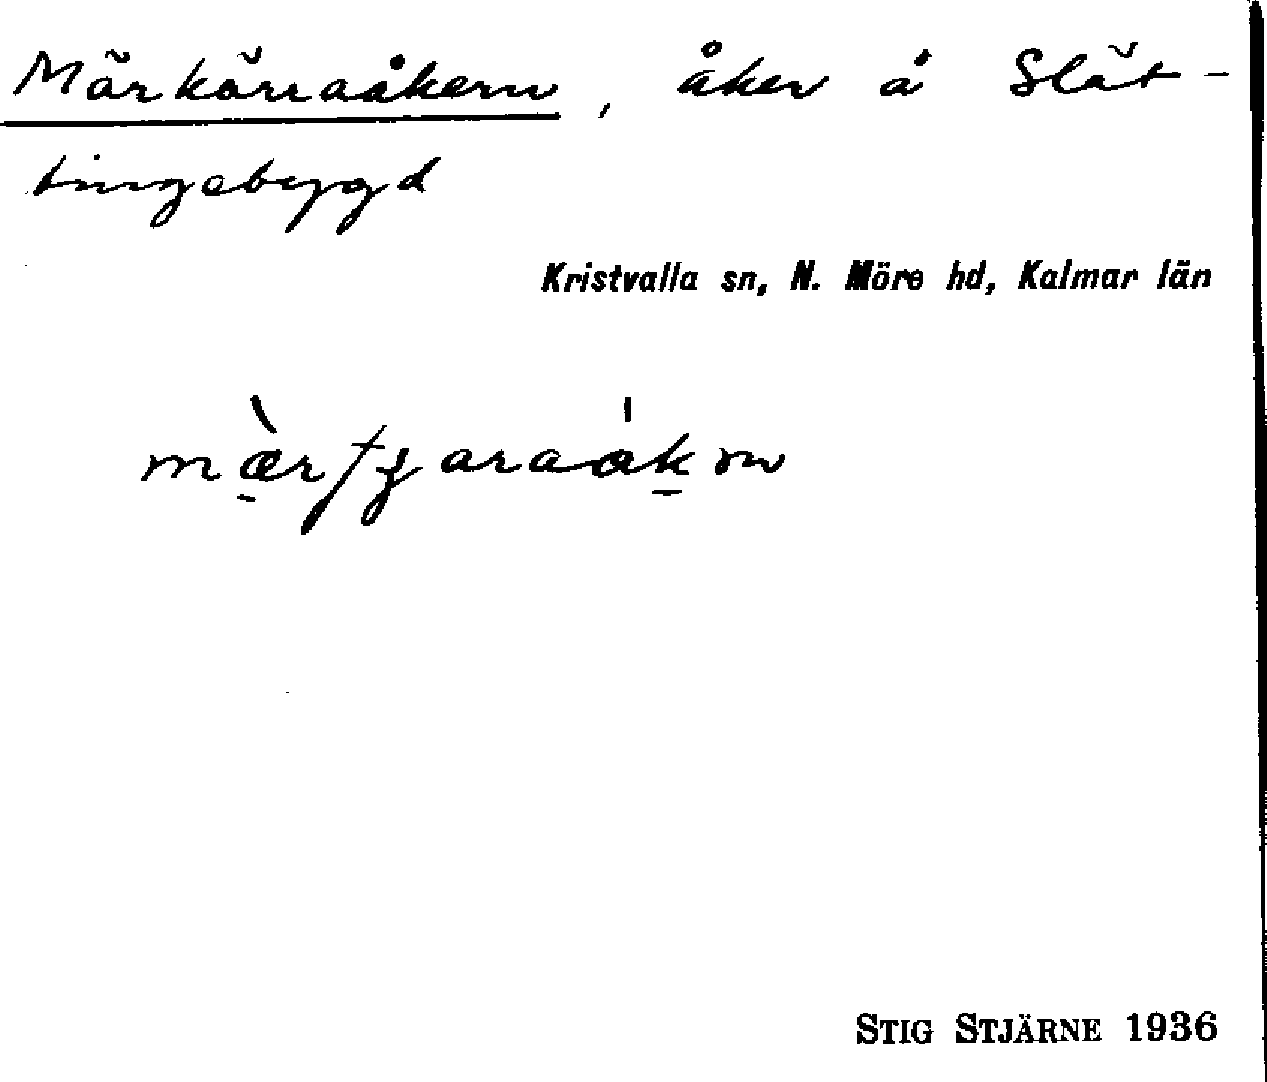 Märkärraåkern, åker å Slät-
tingebygd
Kristvalla sn, N. Möre hd, Kalmar län
STIG STJÄRNE 1936